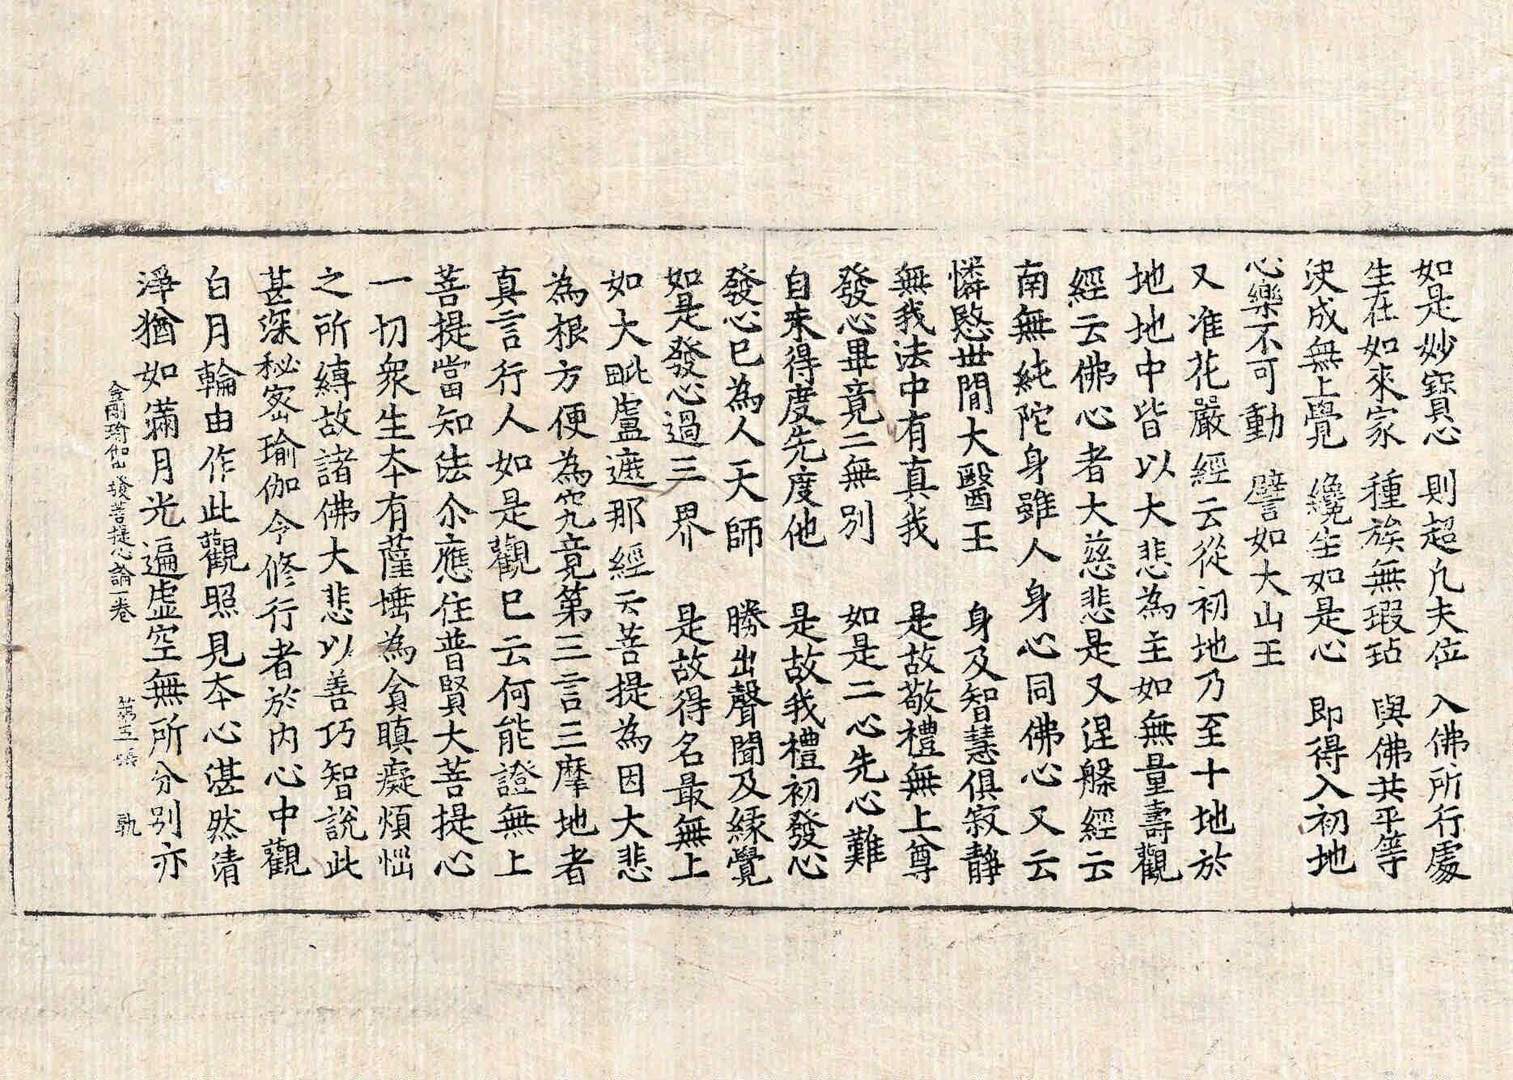 如是妙寶心　則超凡夫位　入佛所行處
生在如來家　種族無瑕玷　與佛共平等
決成無上覺　纔生如是心　即得入初地
心樂不可動　譬如大山王
又准花嚴經云從初地乃至十地於
地地中皆以大悲為主如無量壽觀
經云佛心者大慈悲是又涅槃經云
南無純陀身雖人身心同佛心又云
憐愍世間大醫王　身及智慧俱寂靜
無我法中有真我　是故敬禮無上尊
發心畢竟二無別　如是二心先心難
自未得度先度他　是故我禮初發心
發心已為人天師　勝出聲聞及緣覺
如是發心過三界　是故得名最無上
如大毗盧遮那經云菩提為因大悲
為根方便為究竟第三言三摩地者
真言行人如是觀已云何能證無上
菩提當知法尒應住普賢大菩提心
一切眾生本有薩埵為貪瞋癡煩惱
之所縛故諸佛大悲以善巧智說此
甚深秘密瑜伽令修行者於內心中觀
白月輪由作此觀照見本心湛然清
淨猶如滿月光遍虛空無所分別亦
金剛瑜伽發菩提心論一卷　第五張　執